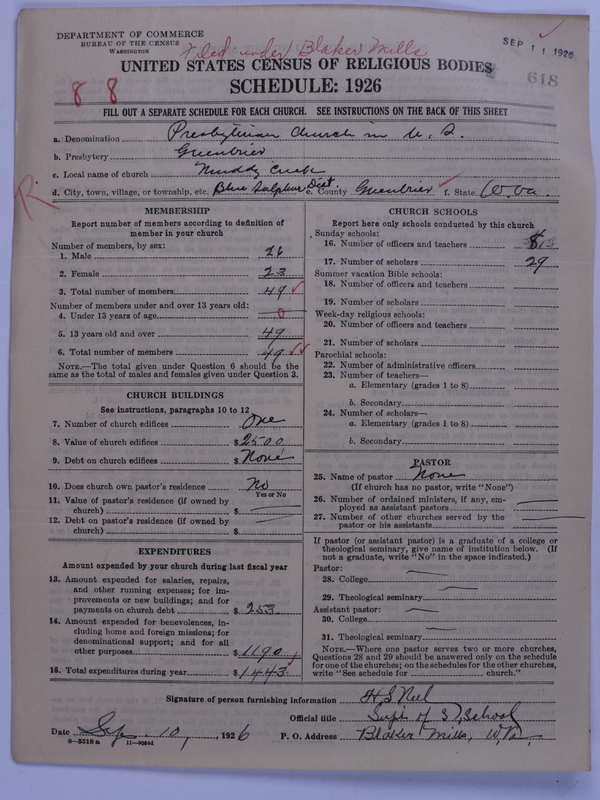 DEPARTMENT OF COMMERCE
BUREAU OF THE CENSUS
WASHINGTON
Filed under Blaker Mills
SEP 11 1926
618
UNITED STATES CENSUS OF RELIGIOUS BODIES
SCHEDULE: 1926
8 8
FILL OUT A SEPARATE SCHEDULE FOR EACH CHURCH. SEE INSTRUCTIONS ON THE BACK OF THIS SHEET
a. Denomination Presbyterian Church in U. S.
b. Presbytery Greenbrier
c. Local name of church Muddy Creek
d. City, town, village, or township, etc. Blue Sulphur Dist. e. County Greenbrier f. State W. Va.
R.
MEMBERSHIP
Report number of members according to definition of
member in your church
Number of members, by sex:
1. Male 26
2. Female 23
3. Total number of members 49
Number of members under and over 13 years old:
4. Under 13 years of age 0
5. 13 years old and over 49
6. Total number of members 49
NOTE.—The total given under Question 6 should be the
same as the total of males and females given under Question 3.
CHURCH BUILDINGS
See instructions, paragraphs 10 to 12
7. Number of church edifices One
8. Value of church edifices $ 2500
9. Debt on church edifices $ None
10. Does church own pastor's residence No
Yes or No
11. Value of pastor's residence (if owned by
church) $
12. Debt on pastor's residence (if owned by
church) $
EXPENDITURES
Amount expended by your church during last fiscal year
13. Amount expended for salaries, repairs,
and other running expenses; for im-
provements or new buildings; and for
payments on church debt $ 253
14. Amount expended for benevolences, in-
cluding home and foreign missions; for
denominational support; and for all
other purposes $ 1190
15. Total expenditures during year $ 1443
CHURCH SCHOOLS
Report here only schools conducted by this church
Sunday schools:
16. Number of officers and teachers
17. Number of scholars 29
Summer vacation Bible schools:
18. Number of officers and teachers
19. Number of scholars
Week-day religious schools:
20. Number of officers and teachers
21. Number of scholars
Parochial schools:
22. Number of administrative officers
23. Number of teachers—
a. Elementary (grades 1 to 8)
b. Secondary
24. Number of scholars—
a. Elementary (grades 1 to 8)
b. Secondary
PASTOR
25. Name of pastor None
(If church has no pastor, write "None")
26. Number of ordained ministers, if any, em-
ployed as assistant pastors
27. Number of other churches served by the
pastor or his assistants
If pastor (or assistant pastor) is a graduate of a college or
theological seminary, give name of institution below. (If
not a graduate, write "No" in the space indicated.)
Pastor:
28. College
29. Theological seminary
Assistant pastor:
30. College
31. Theological seminary
NOTE.—Where one pastor serves two or more churches,
Questions 28 and 29 should be answered only on the schedule
for one of the churches; on the schedules for the other churches,
write "See schedule for church."
Signature of person furnishing information H. S. Neel
Official title Supt of S. School
Date Sep. 10, 1926 P. O. Address Blaker Mills, W. Va.
8—5518 a 11—9054d